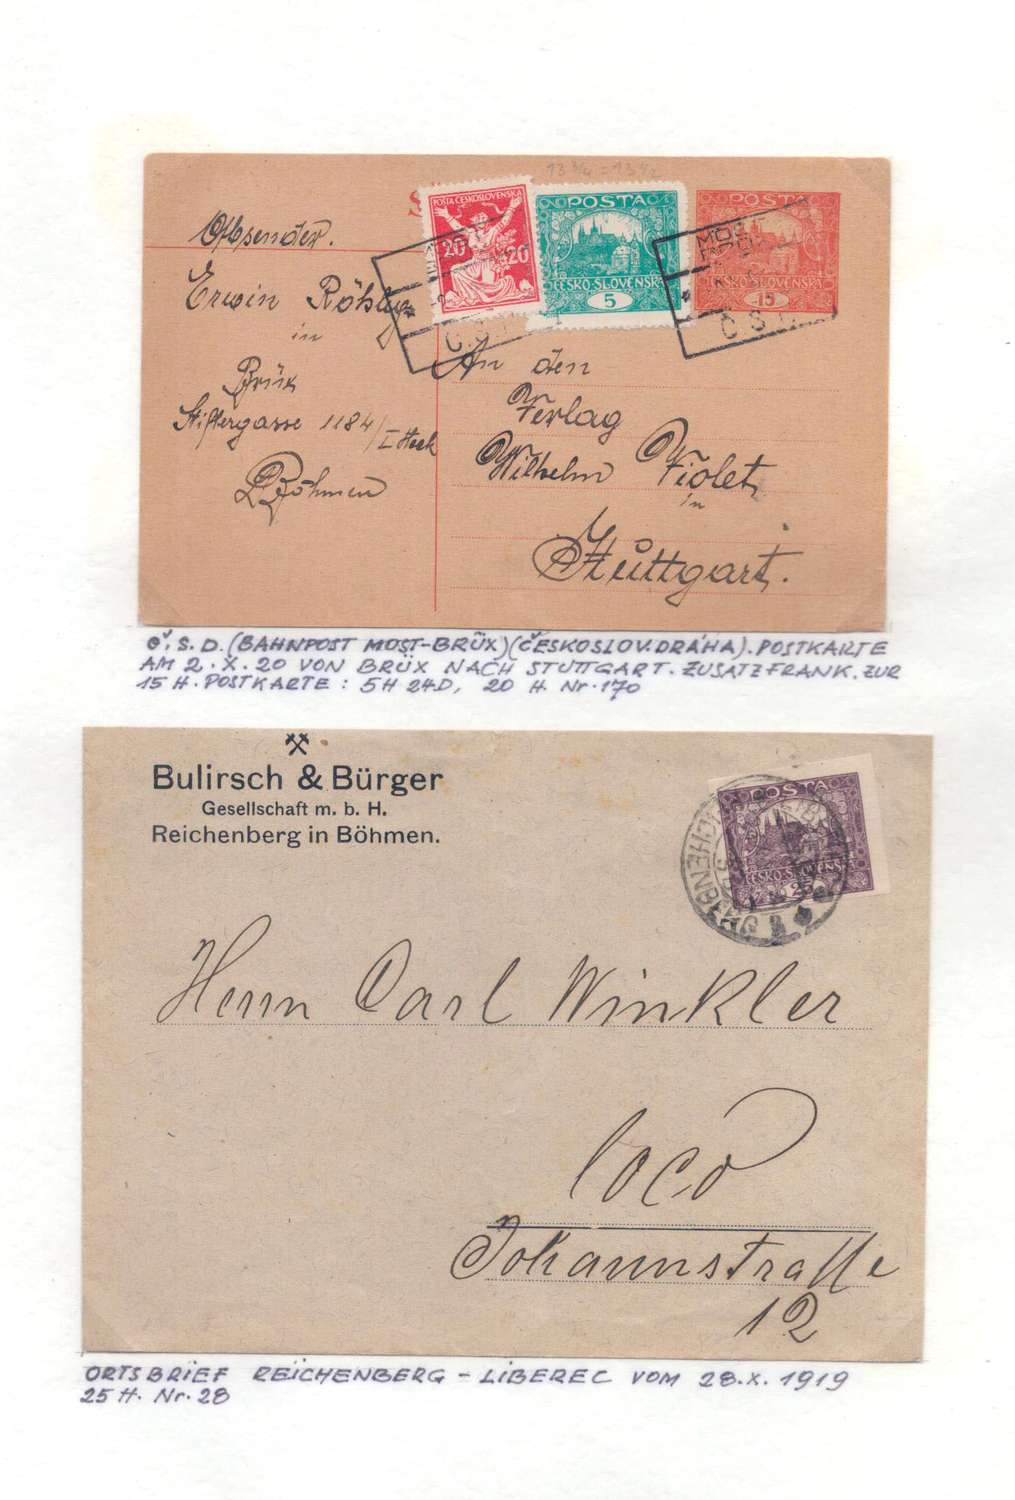 13 3/4 : 13 1/2
POSTA ČESKOSLOVENSKÁ
20 20
POSTA
ČESKO-SLOVENSKÁ
5
POSTA
ČESKO-SLOVENSKÁ
15
MOS
Č S
Č.S.
Absender.
Erwin
in
Brüx
Stiftergasse 1184/I Stock
Böhmen
An den
Verlag
Wilhelm Violet
in
Stuttgart.
Č.S.D. (BAHNPOST MOST-BRÜX) (ČESKOSLOV. DRÁHA). POSTKARTE
AM 2.X.20 VON BRÜX NACH STUTTGART. ZUSATZFRANK. ZUR
15 H. POSTKARTE : 5H 24D, 20 H. Nr. 170
Bulirsch & Bürger
Gesellschaft m. b. H.
Reichenberg in Böhmen.
POSTA
ČESKO-SLOVENSKÁ
25
Herrn Carl Winkler
loco
Johannstraße
12
ORTSBRIEF REICHENBERG - LIBEREC VOM 28.X.1919
25 H. Nr. 28